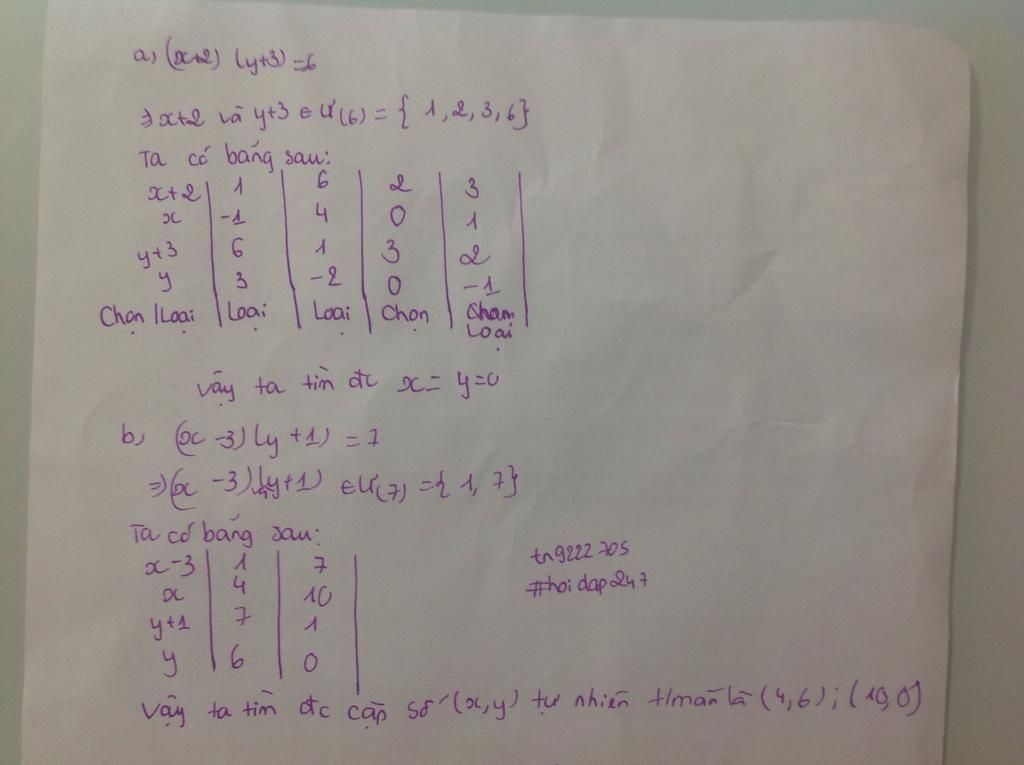 a) (x+2) (y+3) =6
⇒ x+2 và y+3 ∈ Ư(6) = { 1, 2, 3, 6}
Ta có bảng sau:
x+2 | 1 | 6 | 2 | 3 |
x | -1 | 4 | 0 | 1 |
y+3 | 6 | 1 | 3 | 2 |
y | 3 | -2 | 0 | -1 |
Chọn /Loại | Loại | Loại | Chọn | Loại |
vậy ta tìm đc x = y=0
b) (x -3) (y +1) = 7
⇒ (x -3) và (y+1) ∈ Ư(7) = { 1, 7}
Ta có bảng sau:
x-3 | 1 | 7 |
x | 4 | 10 |
y+1 | 7 | 1 |
y | 6 | 0 |
tn9222705
#hoidap247
vậy ta tìm đc cặp số (x,y) tự nhiên t/mãn là (4,6); (10,0)